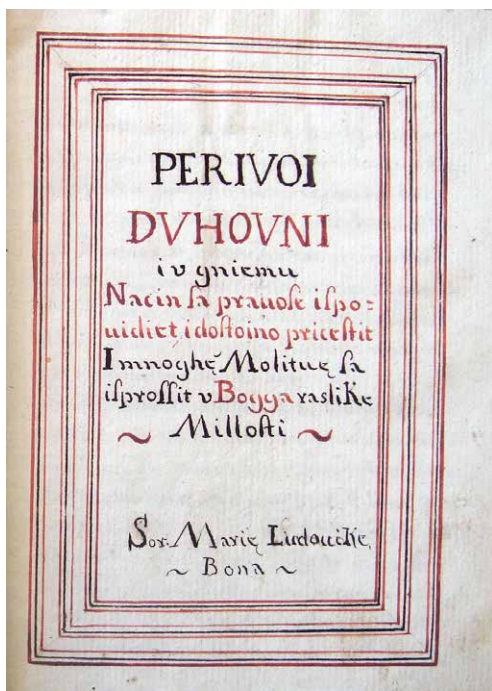 PERIVOI
DVHOVNI
i v gniemu
Nacin ſa prauoſe iſpo=
uidięt, i doſtoino priceſtit
I mnoghę Molituę ſa
iſproſſit v Bogga raſlike
~ Milloſti ~
Sor. Marię Ludouike
~ Bona ~